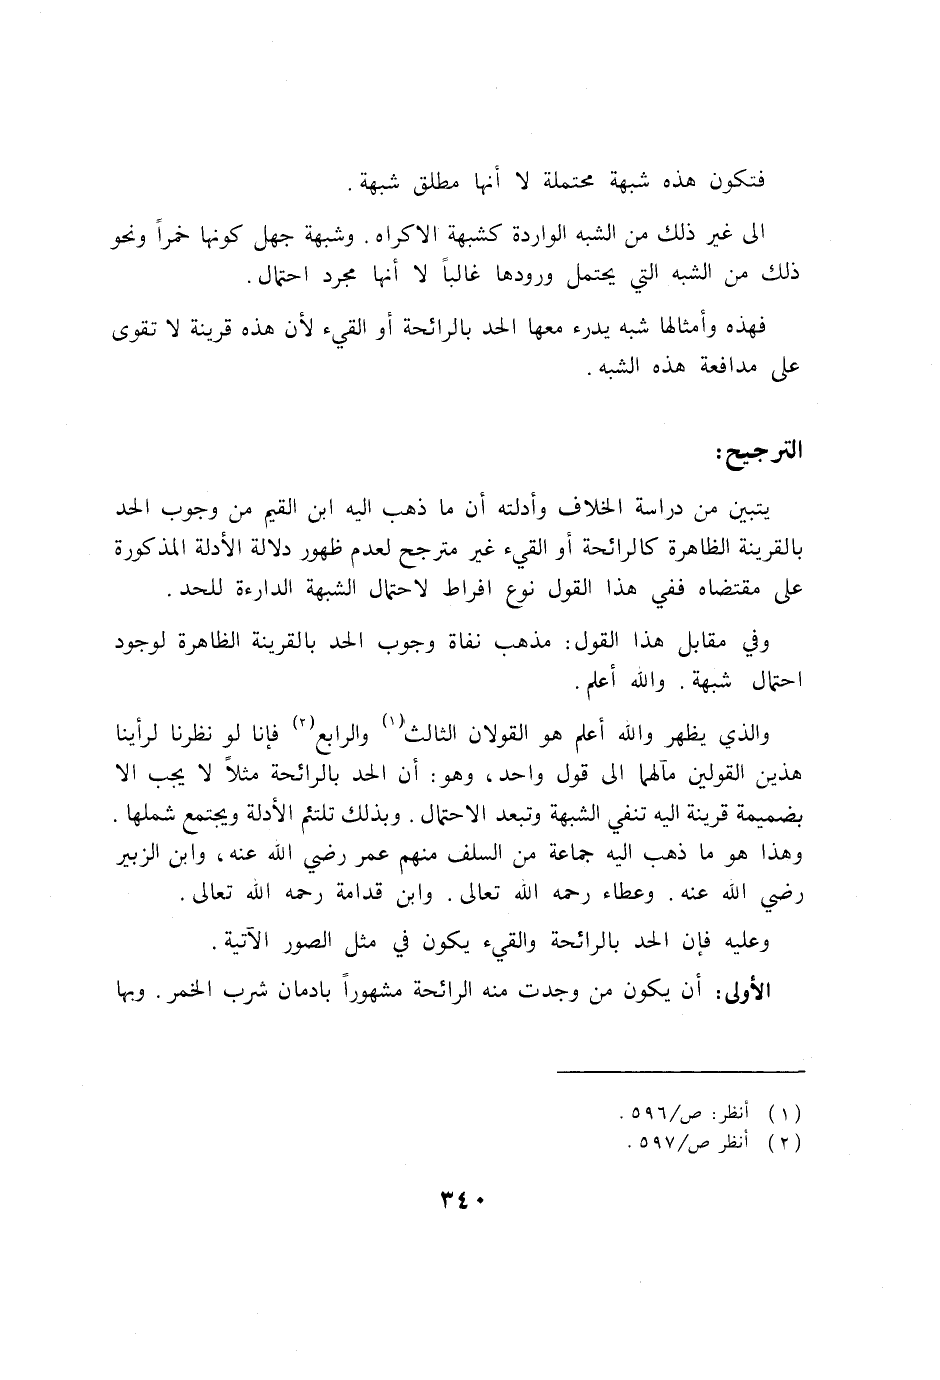 فتكون هذه شبهة محتملة لا أنها مطلق شبهة .
الى غير ذلك من الشبه الواردة كشبهة الاكراه . وشبهة جهل كونها خمراً ونحو
ذلك من الشبه التي يحتمل ورودها غالباً لا أنها مجرد احتمال .
فهذه وأمثالها شبه يدرء معها الحد بالرائحة أو القيء لأن هذه قرينة لا تقوى
على مدافعة هذه الشبه .
الترجيح :
يتبين من دراسة الخلاف وأدلته أن ما ذهب اليه ابن القيم من وجوب الحد
بالقرينة الظاهرة كالرائحة أو القيء غير مترجح لعدم ظهور دلالة الأدلة المذكورة
على مقتضاه ففي هذا القول نوع افراط لاحتمال الشبهة الدارءة للحد .
وفي مقابل هذا القول : مذهب نفاة وجوب الحد بالقرينة الظاهرة لوجود
احتمال شبهة . والله أعلم .
والذي يظهر والله أعلم هو القولان الثالث(١) والرابع(٢) فإنا لو نظرنا لرأينا
هذين القولين مآلهما الى قول واحد ، وهو : أن الحد بالرائحة مثلاً لا يجب الا
بضميمة قرينة اليه تنفي الشبهة وتبعد الاحتمال . وبذلك تلتئم الأدلة ويجتمع شملها .
وهذا هو ما ذهب اليه جماعة من السلف منهم عمر رضي الله عنه ، وابن الزبير
رضي الله عنه . وعطاء رحمه الله تعالى . وابن قدامة رحمه الله تعالى .
وعليه فإن الحد بالرائحة والقيء يكون في مثل الصور الآتية .
الأولى : أن يكون من وجدت منه الرائحة مشهوراً بادمان شرب الخمر . وبها
(١) أنظر : ص/٥٩٦ .
(٢) أنظر ص/٥٩٧ .
٣٤٠